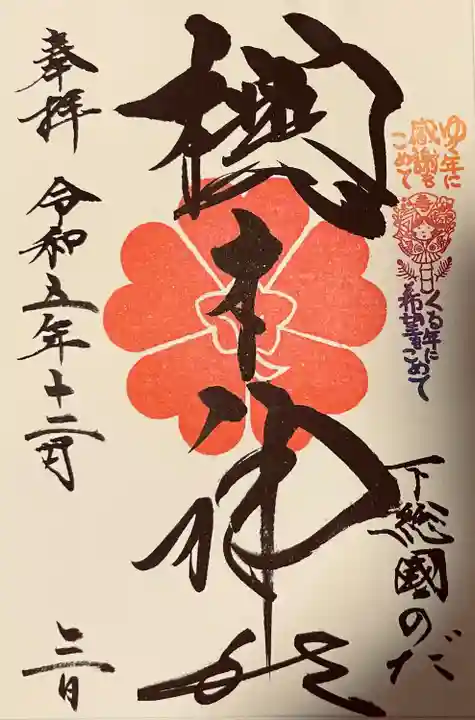 ゆく年に
感謝を
こめて
くる年に
希望をこめて
下総國のだ
櫻木神社
奉拝 令和五年十二月 日